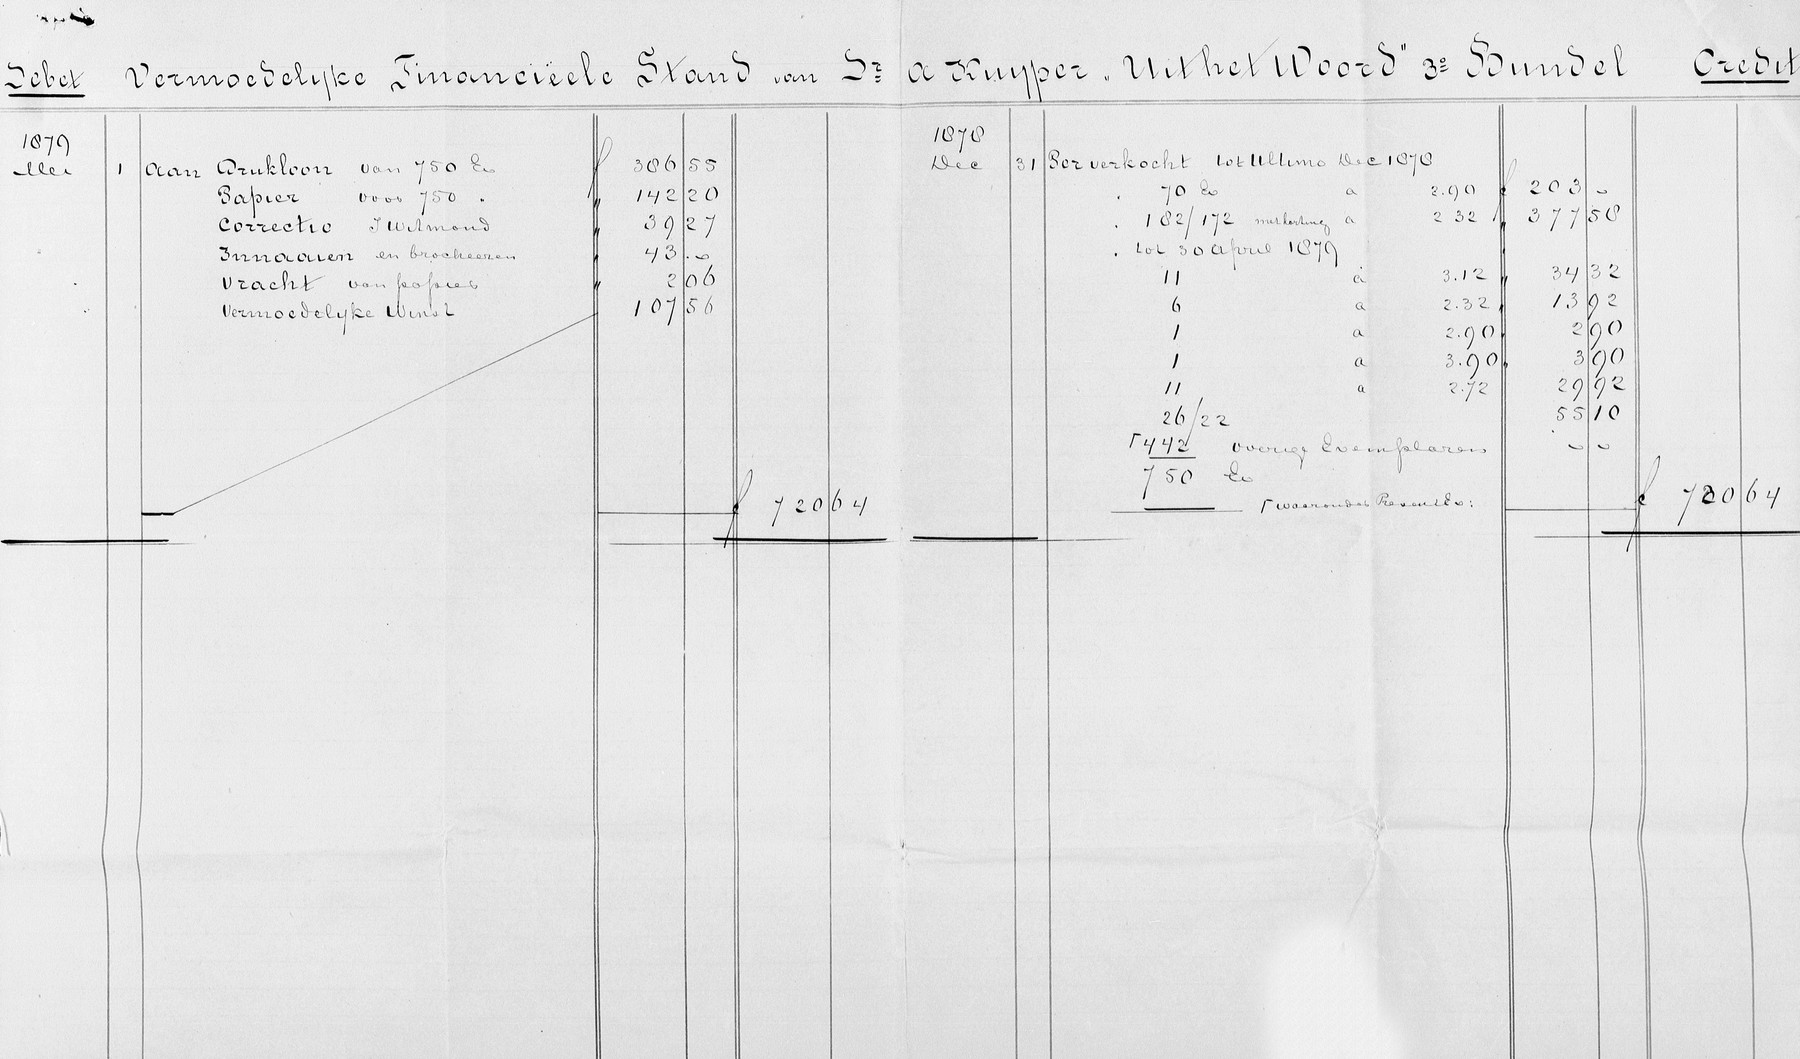 Debet Vermoedelijke Financiëele Stand van Dr A Kuyper "Uit het Woord" 3e Bundel Credit
1879
Mei 1 Aan Drukloon van 750 Ex f 386 55
Papier voor 750 " " 142 20
Correctie J Witmond " 39 27
Innaaien en brocheeren " 43 . "
Vracht van papier " 2 06
Vermoedelijke Winst 107 56
f 720 64
1878
Dec 31 Per verkocht tot Ultimo Dec 1878
" 70 Ex a 2.90 f 203 "
" 182/172 met korting a 2 32 " 377 58
" tot 30 april 1879
11 à 3.12 " 34 32
6 a 2.32 " 13 92
1 a 2.90 " 2 90
1 a 3.90 " 3 90
11 a 2.72 29 92
26/22 55 10
Γ 442 overige Exemplaren " "
750 Ex
Γ waaronder Present Ex:
f 720 64